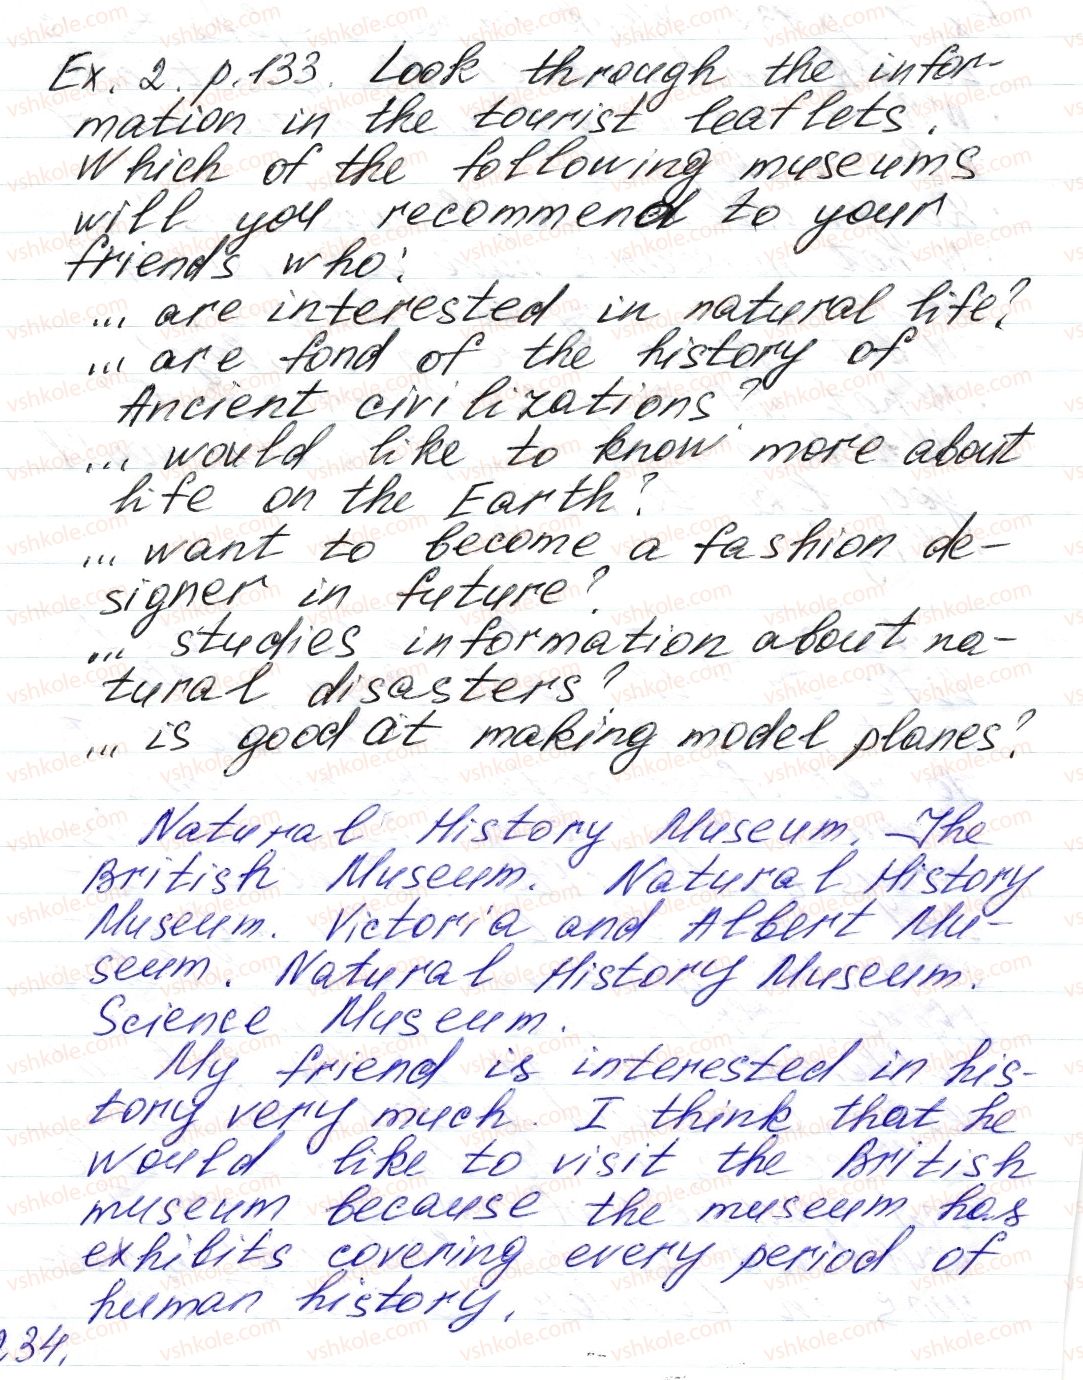 Ex. 2. p. 133. Look through the infor-
mation in the tourist leaflets.
Which of the following museums
will you recommend to your
friends who:
... are interested in natural life?
... are fond of the history of
Ancient civilizations?
... would like to know more about
life on the Earth?
... want to become a fashion de-
signer in future?
... studies information about na-
tural disasters?
... is good at making model planes?
Natural History Museum. The
British Museum. Natural History
Museum. Victoria and Albert Mu-
seum. Natural History Museum.
Science Museum.
My friend is interested in his-
tory very much. I think that he
would like to visit the British
museum because the museum has
exhibits covering every period of
human history.
34.
vshkole.com